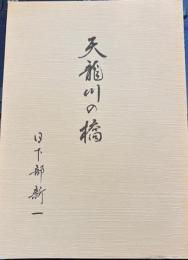 天龍川の橋
日下部新一